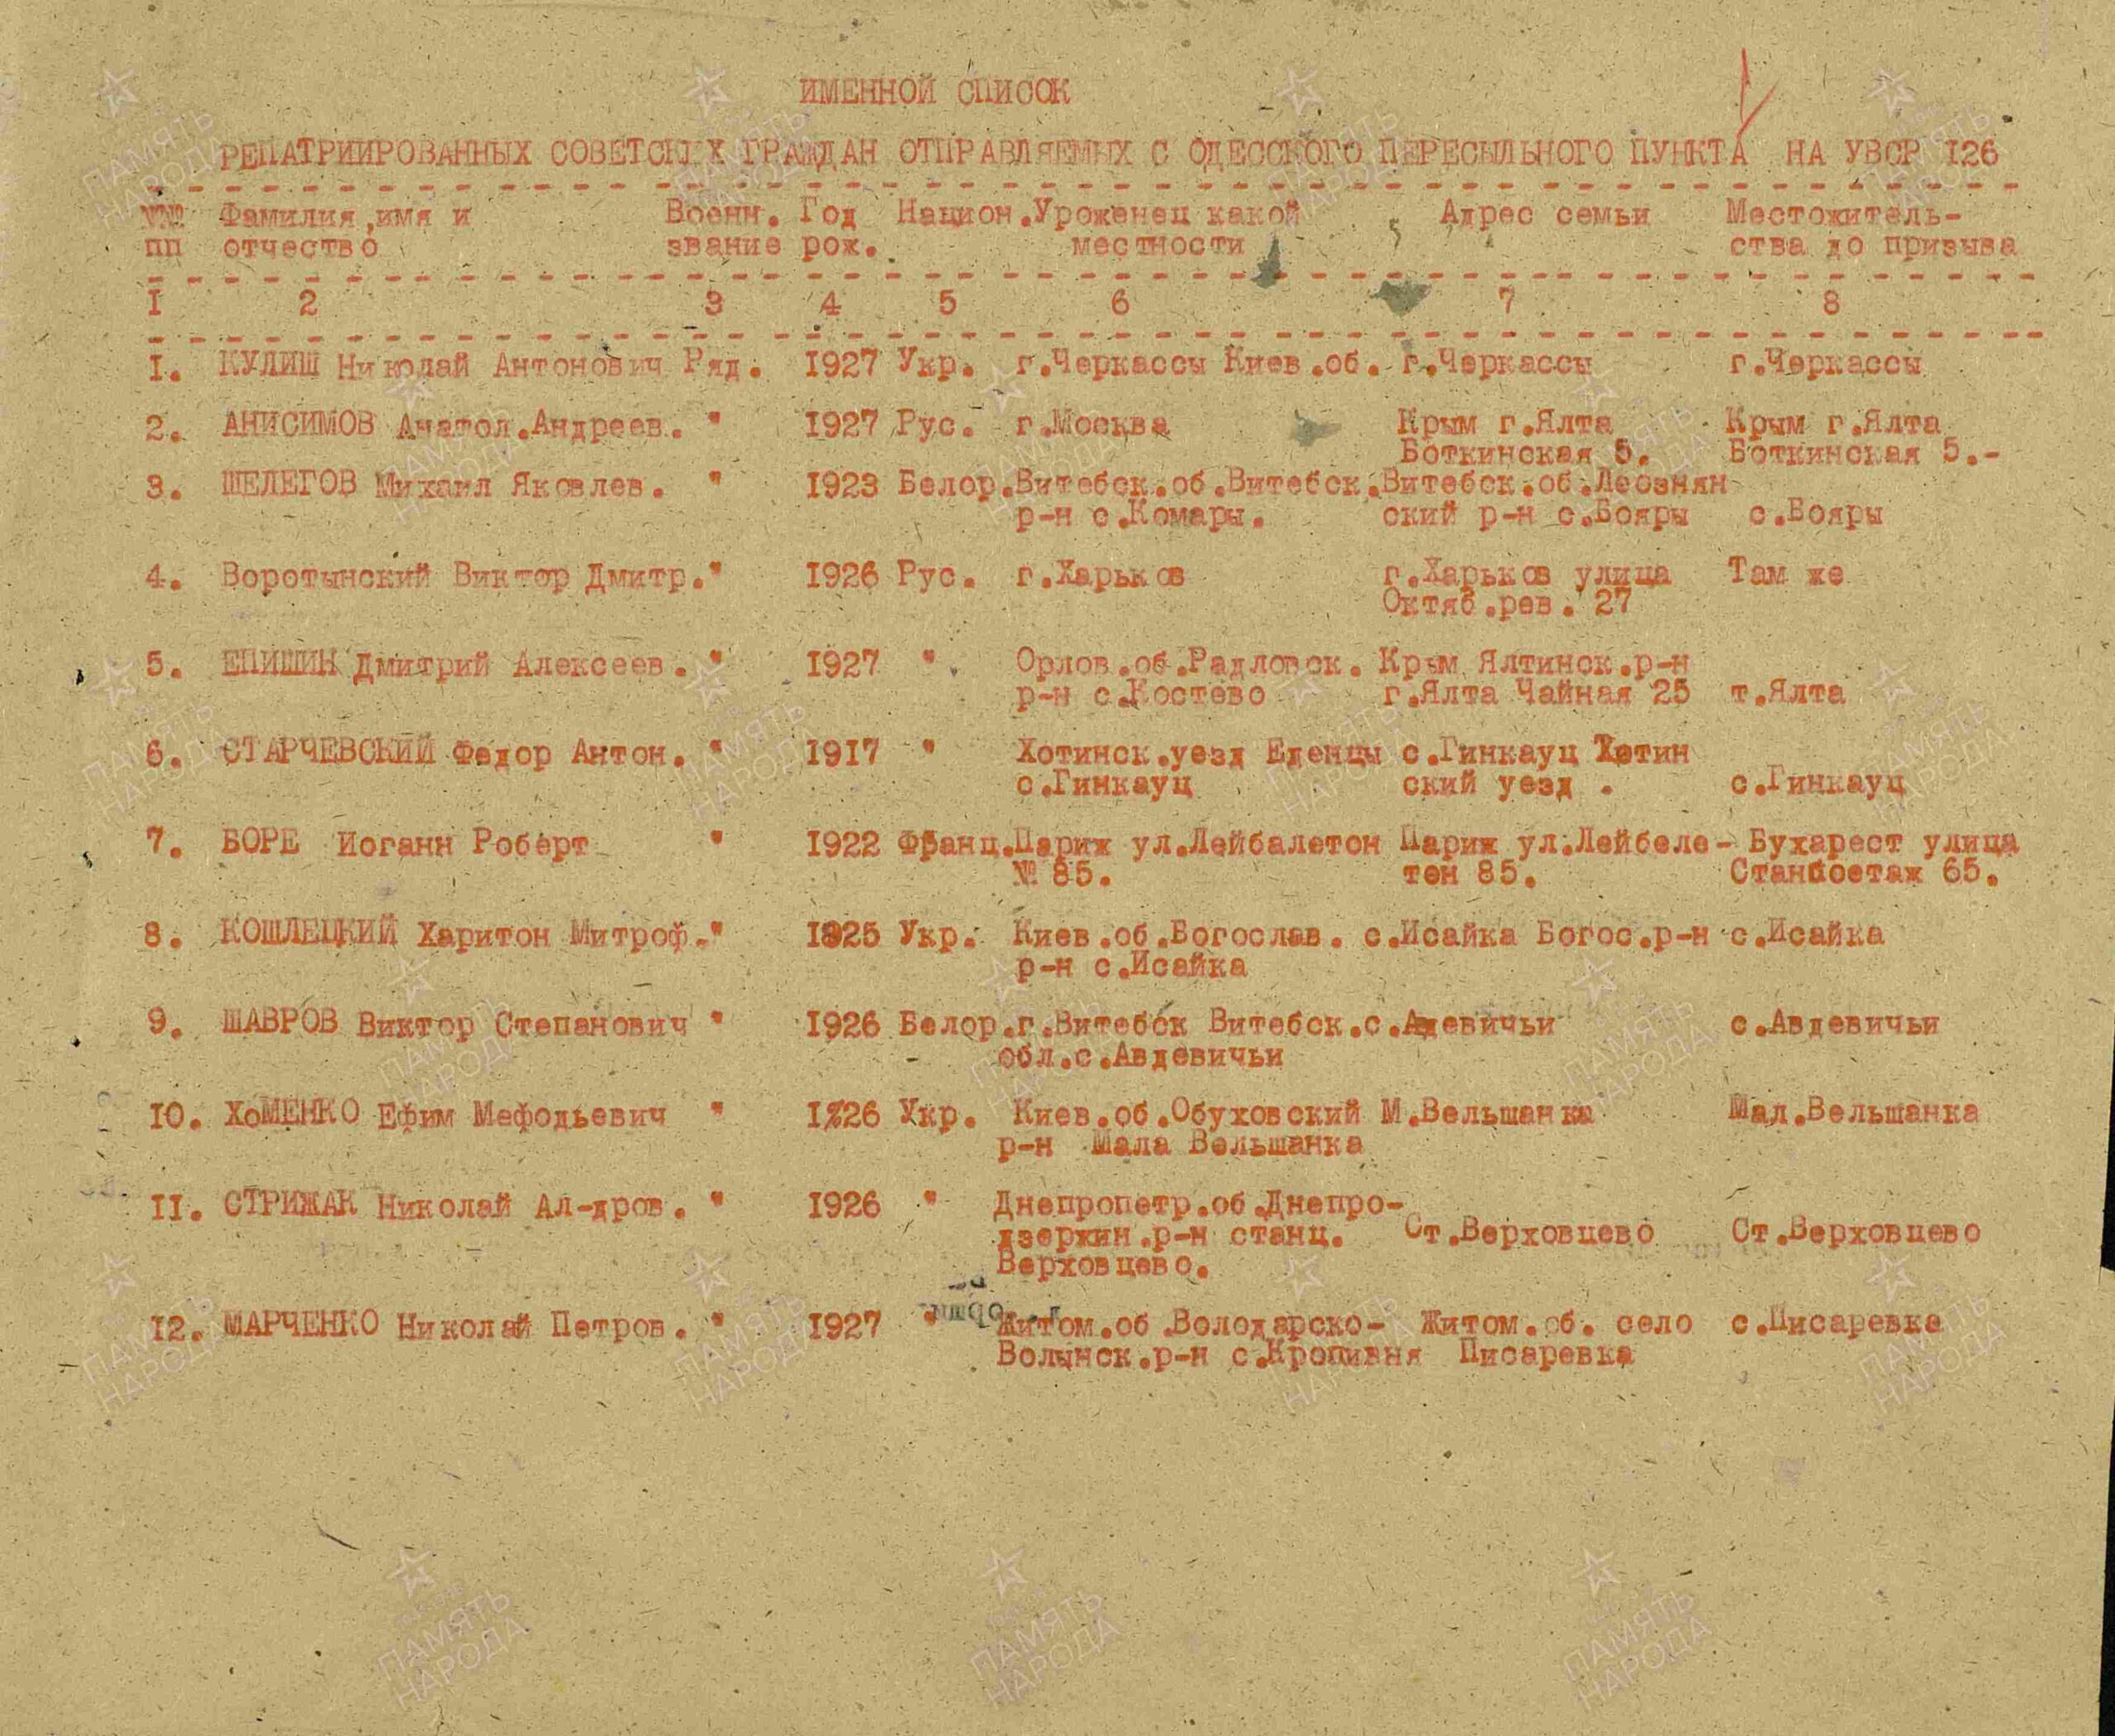 ИМЕННОЙ СПИСОК
РЕПАТРИИРОВАННЫХ СОВЕТСКИХ ГРАЖДАН ОТПРАВЛЯЕМЫХ С ОДЕССКОГО ПЕРЕСЫЛЬНОГО ПУНКТА НА УВСР 126
№№ Фамилия,имя и Военн. Год Национ. Уроженец какой Адрес семьи Местожитель-
пп отчество звание рож. местности ства до призыва
I 2 3 4 5 6 7 8
I. КУЛИШ Николай Антонович Ряд. 1927 Укр. г.Черкассы Киев.об. г.Черкассы г.Черкассы
2. АНИСИМОВ Анатол.Андреев. " 1927 Рус. г.Москва Крым г.Ялта Крым г.Ялта
Боткинская 5. Боткинская 5.-
3. ШЕЛЕГОВ Михаил Яковлев. " 1923 Белор. Витебск.об.Витебск. Витебск.об.Леознян
р-н с.Комары. ский р-н с.Бояры с.Бояры
4. Воротынский Виктор Дмитр. " 1926 Рус. г.Харьков г.Харьков улица Там же
Октяб.рев. 27
5. ЕПИШИН Дмитрий Алексеев. " 1927 " Орлов.об.Радловск. Крым Ялтинск.р-н
р-н с.Костево г.Ялта Чайная 25 т.Ялта
6. СТАРЧЕВСКИЙ Федор Антон. " 1917 " Хотинск.уезд Еденцы с.Гинкауц Хотин
с.Гинкауц ский уезд . с.Гинкауц
7. БОРЕ Иоганн Роберт " 1922 Франц. Париж ул.Лейбалетон Париж ул.Лейбеле- Бухарест улица
№ 85. тон 85. Станбоетаж 65.
8. КОШЛЕЦКИЙ Харитон Митроф. " 1925 Укр. Киев.об.Богослав. с.Исайка Богос.р-н с.Исайка
р-н с.Исайка
9. ШАВРОВ Виктор Степанович " 1926 Белор. г.Витебск Витебск. с.Адевичьи с.Авдевичьи
обл.с.Авдевичьи
10. ХоМЕНКО Ефим Мефодьевич " 1926 Укр. Киев.об.Обуховский М.Вельшанка Мал.Вельшанка
р-н Мала Вельшанка
II. СТРИЖАК Николай Ал-дров. " 1926 " Днепропетр.об.Днепро-
дзержин.р-н станц. Ст.Верховцево Ст.Верховцево
Верховцево.
12. МАРЧЕНКО Николай Петров. " 1927 " Житом.об.Володарско- Житом.об. село с.Писаревка
Волынск.р-н с.Кропивня Писаревка
ПАМЯТЬ
НАРОДА